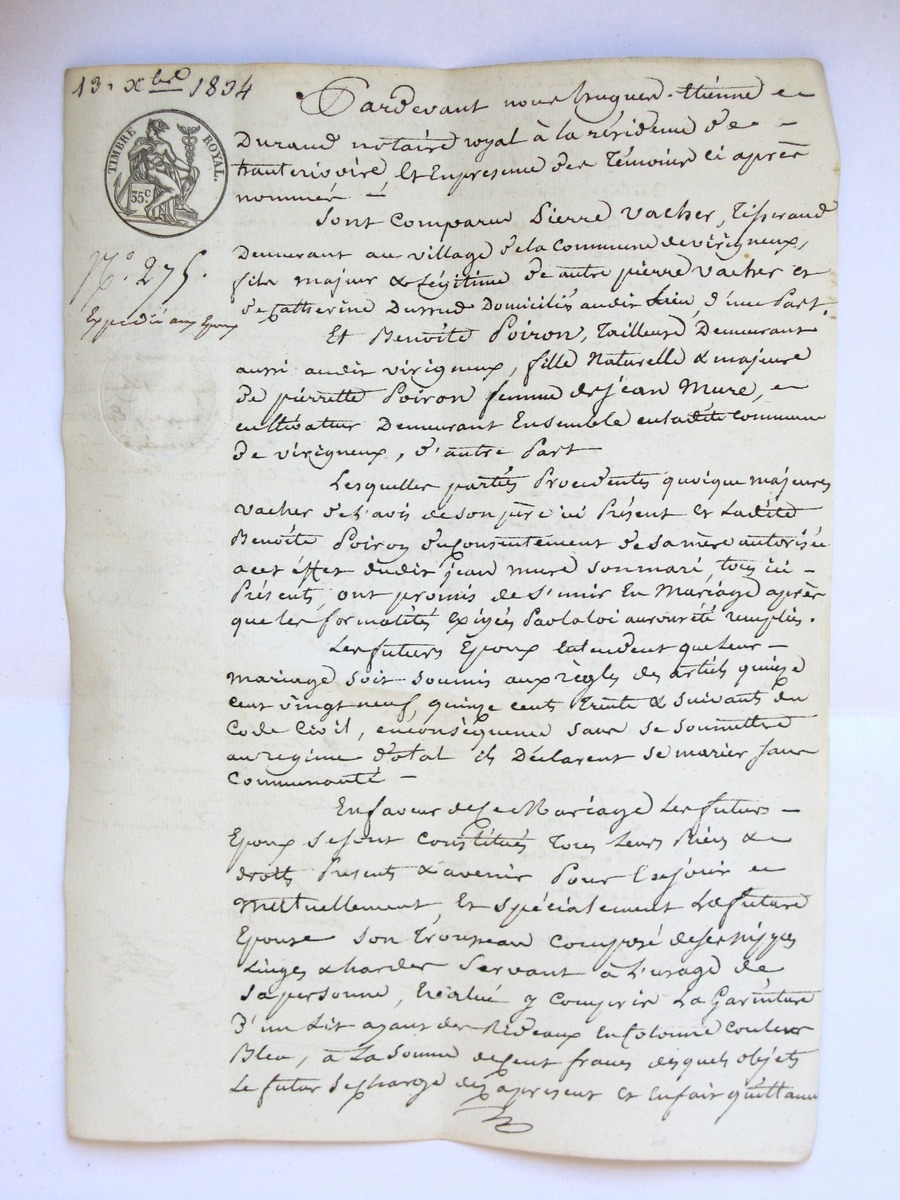 13. Xbre 1834
TIMBRE ROYAL.
35 c.
N.° 275.
Expédié aux Epoux
Pardevant nous hugues Etienne
Durand notaire royal à la résidence de
hauterivoire Et En presence des Témoins ci après
nommés
Sont Comparus Pierre Vacher, Tisserand
Demeurant au village de la Commune de virigneux,
fils majeur & Légitime de autre pierre Vacher et
de Catherine Domiciliés audit Lieu, d'une Part.
Et Benoite Poiron, Tailleuse Demeurant
aussi audit virigneux, fille Naturelle & majeure
de pierrette Poiron femme de jean Mure,
cultivateur Demeurant Ensemble en ladite commune
de virigneux, d'autre Part
Lesquelles parties Procedentes quoique majeures
Vacher de l'avis de son père ici Présent Et Ladite
Benoite Poiron du Consentement de sa mère autorisée
a cet éffet dudit jean mure son mari, tous ici
Présents, ont promis de s'unir En Mariage après
que les formalités exigées Par la loi auront été remplies.
Les futurs Epoux Entendent que Leur
Mariage soit soumis aux règles des articles quinze
cent vingt neuf, quinze cent trente & suivants du
Code Civil, en conséquence sans se soumettre
au regime dotal ils Déclarent se marier sans
Communauté
En faveur de ce Mariage Les futurs
Epoux se sont Constitués Tous Leurs Biens &
droits Presents & avenir Pour En jouir
Mutuellement, Et spécialement La future
Epouse son Trousseau Composé de ses nippes
Linges & hardes Servant à L'usage de
sa personne, Evalué y Compris La Garniture
d'un Lit ayant des Rideaux En Colonne Couleur
Bleu, à La Somme de Cent francs desquels objets
Le futur se charge dès apresent Et En fait quittance